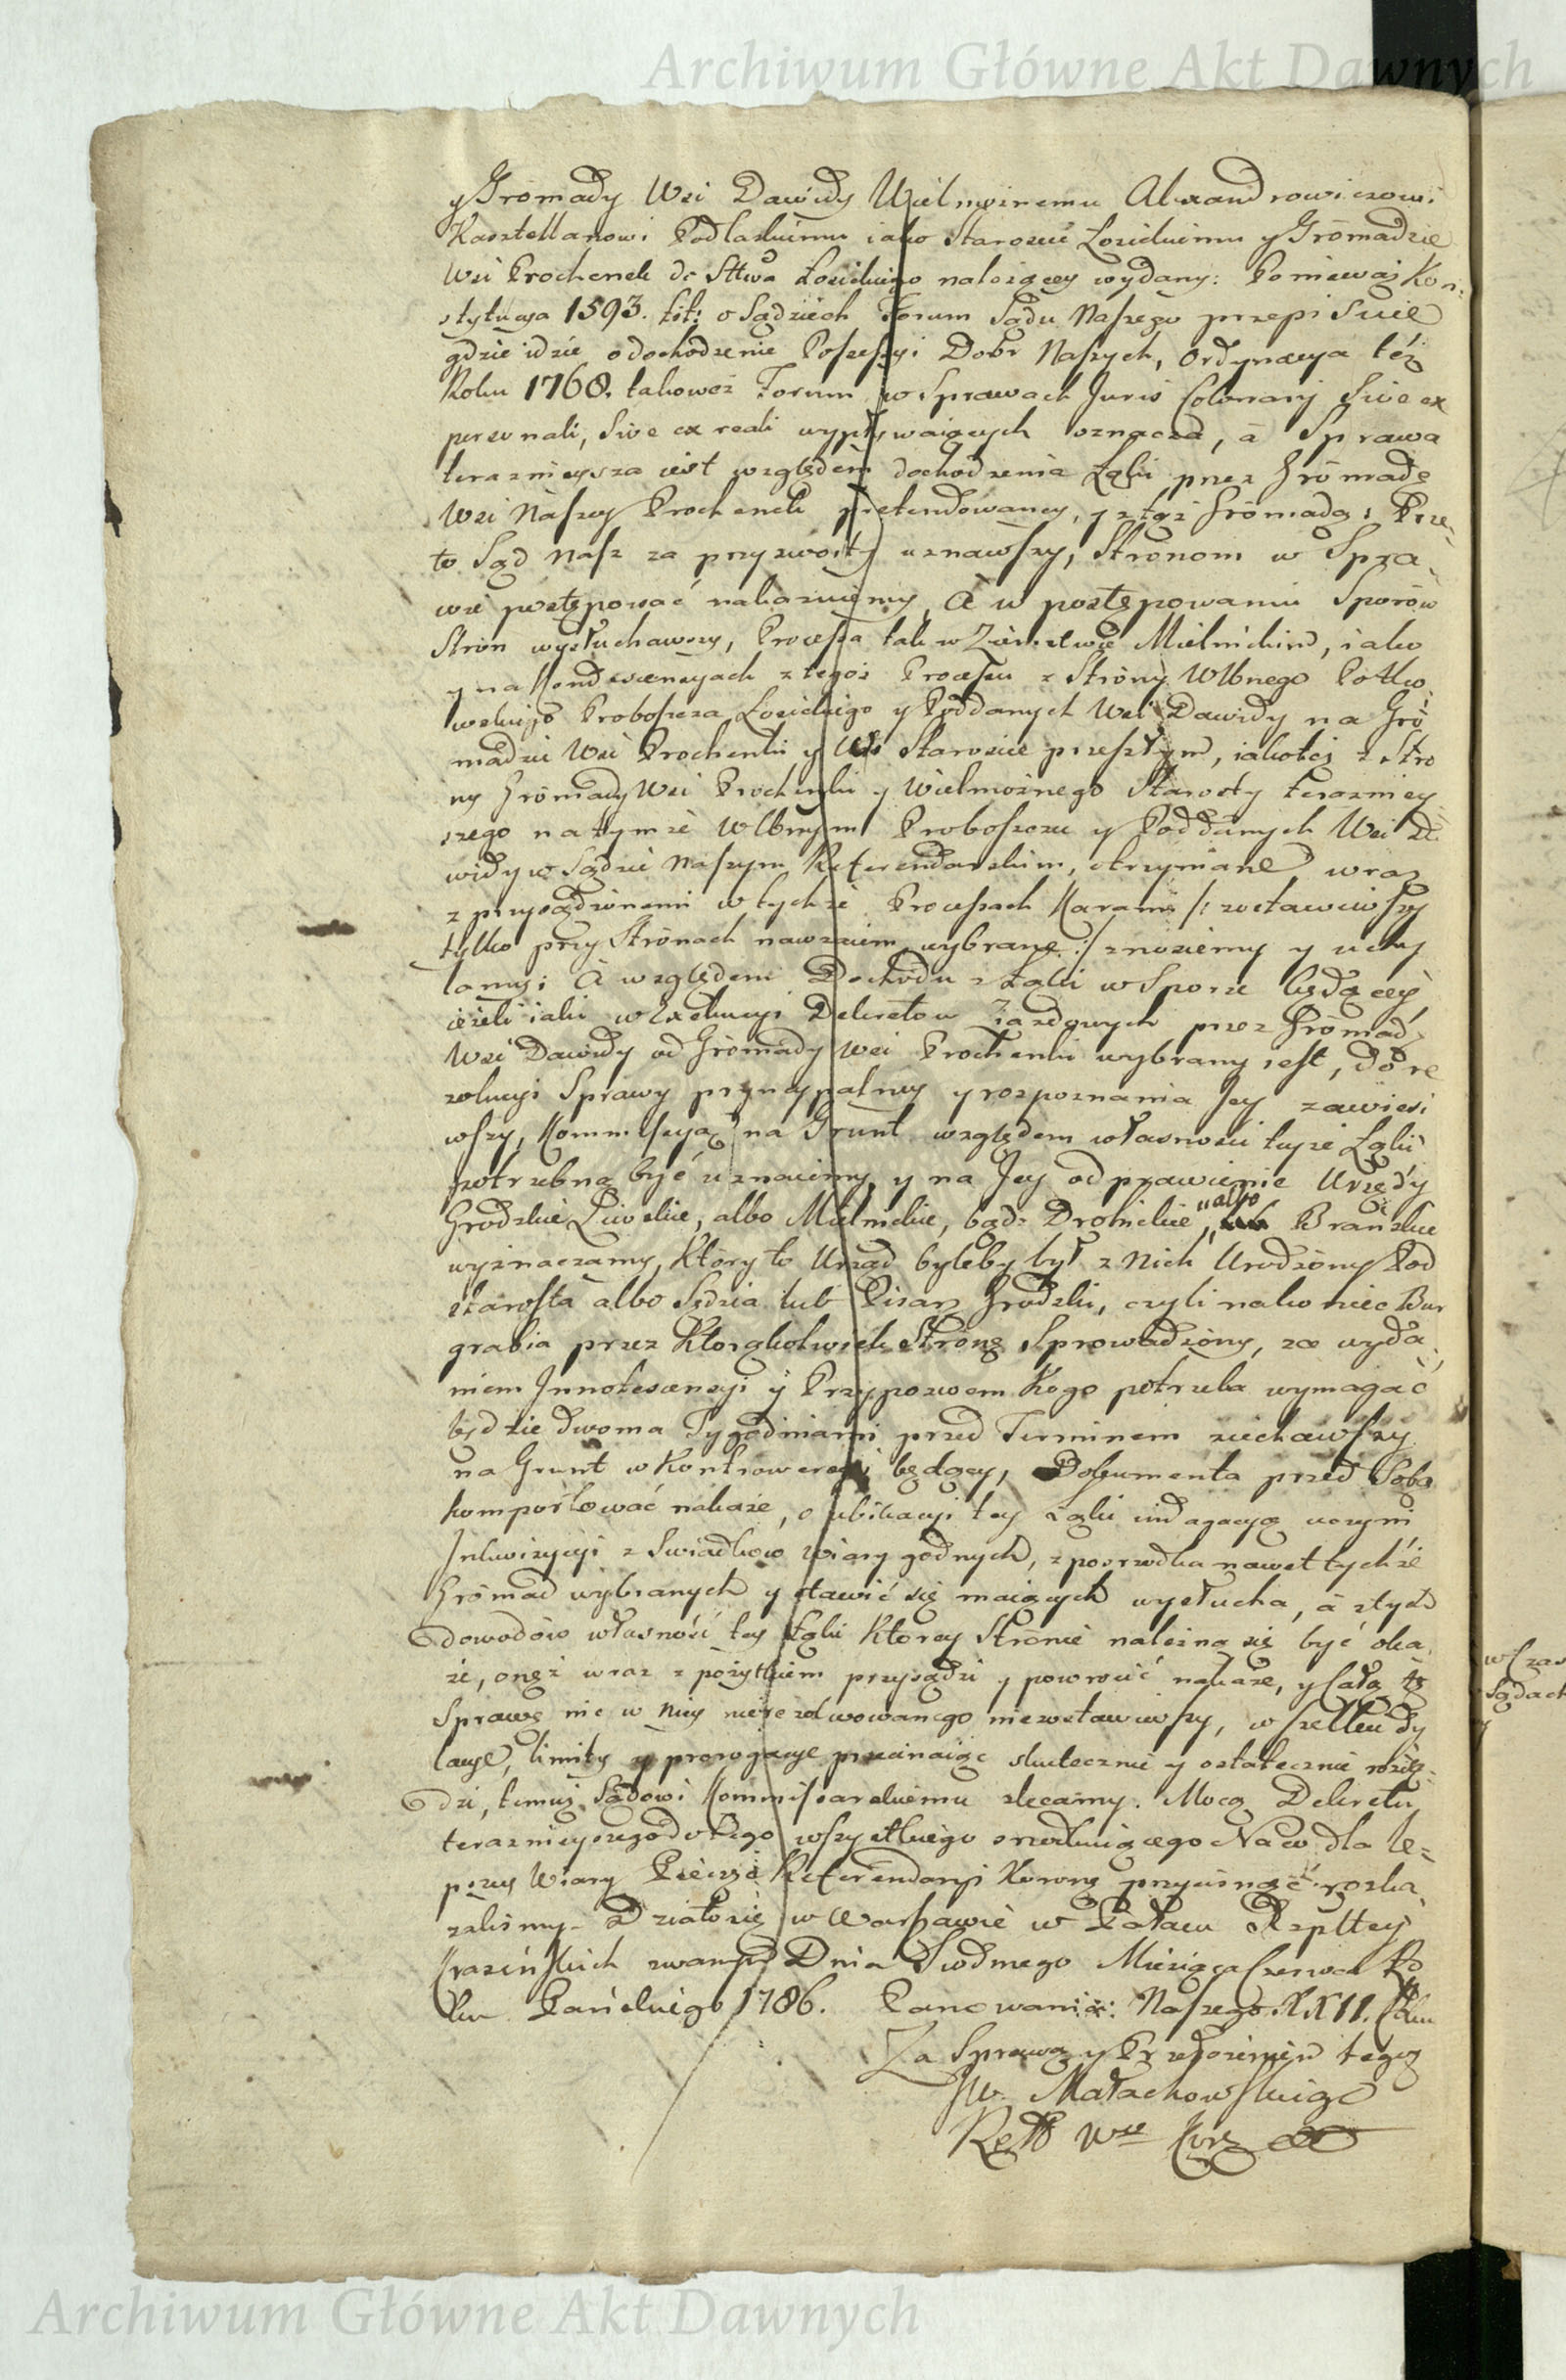 Archiwum Główne Akt Dawnych
y Gromady Wsi Dawidy Wielmożnemu Alexandrowiczowi
Kasztellanowi Podlaskiemu iako Staroście Łosickiemu y Gromadzie
Wsi Prochenek do Sttwa Łosickiego należącey wydany: Ponieważ Kon=
stytucya 1593. tit: o Sądziech Forum Sądu Naszego przepisuie
gdzie idzie o dochodzenie Possessyi Dobr Naszych, Ordynacya téż
Roku 1768. takoweż Forum w Sprawach Juris Colonarij Sive ex
personali, Sive ex reali wypływaiących oznacza, à Sprawa
teraznieysza iest względem dochodzenia Łąki przez Gromadę
Wsi Naszey Prochenek pretendowaney, y z tąż Gromadą; Prze=
to Sąd Nasz za przyzwoity uznawszy, Stronom w Spra=
wie postępować nakazuiemy, à w postępowaniu Sporów
Stron wysłuchawszy, Processa tak w Ziemstwie Mielnickim, iako
y na Kondescensyach z tegoż Processu z Strony Wlbnego
Proboszcza Łosickiego y Poddanych Wsi Dawidy na Gro
madzie Wsi Prochenki y Staroście przeszłym, iakoteż z Stro
ny Gromady Wsi Prochenki y Wielmożnego Starosty terazniey
szego na tymże Wlbnym Proboszczu y Poddanych Wsi Da
widy w Sądzie Naszym Referendarskim, otrzymane wraz
z przysądzonemi w tychże Processach Karami /: zostawiwszy
tylko przy Stronach nawzaiem wybrane :/ znosiemy y uchy
lamy; À względem Dochodu z Łąki w Sporze będącey
ieżeli iaki w Exekucyi Dekretow Ziazdowych przez Gromadę
Wsi Dawidy od Gromady Wsi Prochenki wybrany iest, do re
zolucyi Sprawy pryncypalney y rozpoznania Jey zawiesi
wszy, Kommissyą na Grunt względem własności tejże Łąki
potrzebną być uznaiemy, y na Jey odprawienie Urzędy
Grodzkie Liwskie, albo Mielnickie, bądź Drohickie, "albo Brańskie
wyznaczamy, Który to Urząd byleby był z Nich Urodzony Pod
starosta albo Sędzia lub Pisarz Grodzki, czyli nakoniec Bur
grabia przez Którąkolwiek Stronę Sprowadzony, za wyda=
niem Innotescensyi y Przypozwem Kogo potrzeba wymagać
będzie dwoma Tygodniami przed Terminem ziechawszy
na Grunt w Kontrowersyi będący, Dokumenta przed Sobą
komportować nakaże, o ubikacyi tey Łąki indagacyą uczyni
Inkwizycyi z Swiadkow Wiary godnych, z posrzodka nawet tychże
Gromad wybranych y stawić się maiących wysłucha, à z tych
dowodów własność tey Łąki Którey Stronie należną się być oka
że, onęż wraz z pożytkiem przysądzi y powrocić nakaże, y całą tę
Sprawę nic w Niey nierezolwowanego niezostawiwszy, wszelkie dy
lacye, limity y prorogacye przecinaiąc skutecznie y ostatecznie rozsą=
dzi, temuż Sądowi Kommissarskiemu zlecamy. Mocą Dekretu
teraznieyszego
pszey Wiary Pieczęć Referendaryi Koronney przycisnąć rozka=
zaliśmy. Działo się w Warszawie w Pałacu Rzpltey
Krasińskich zwanym Dnia Siodmego Miesiąca Czerwca Ro
ku Pańskiego 1786. Panowania: Naszego XXII. Roku
Za Sprawą y Przełożeniem tegoż
JW. Małachowskiego
w Czas
Sądach
Archiwum Główne Akt Dawnych